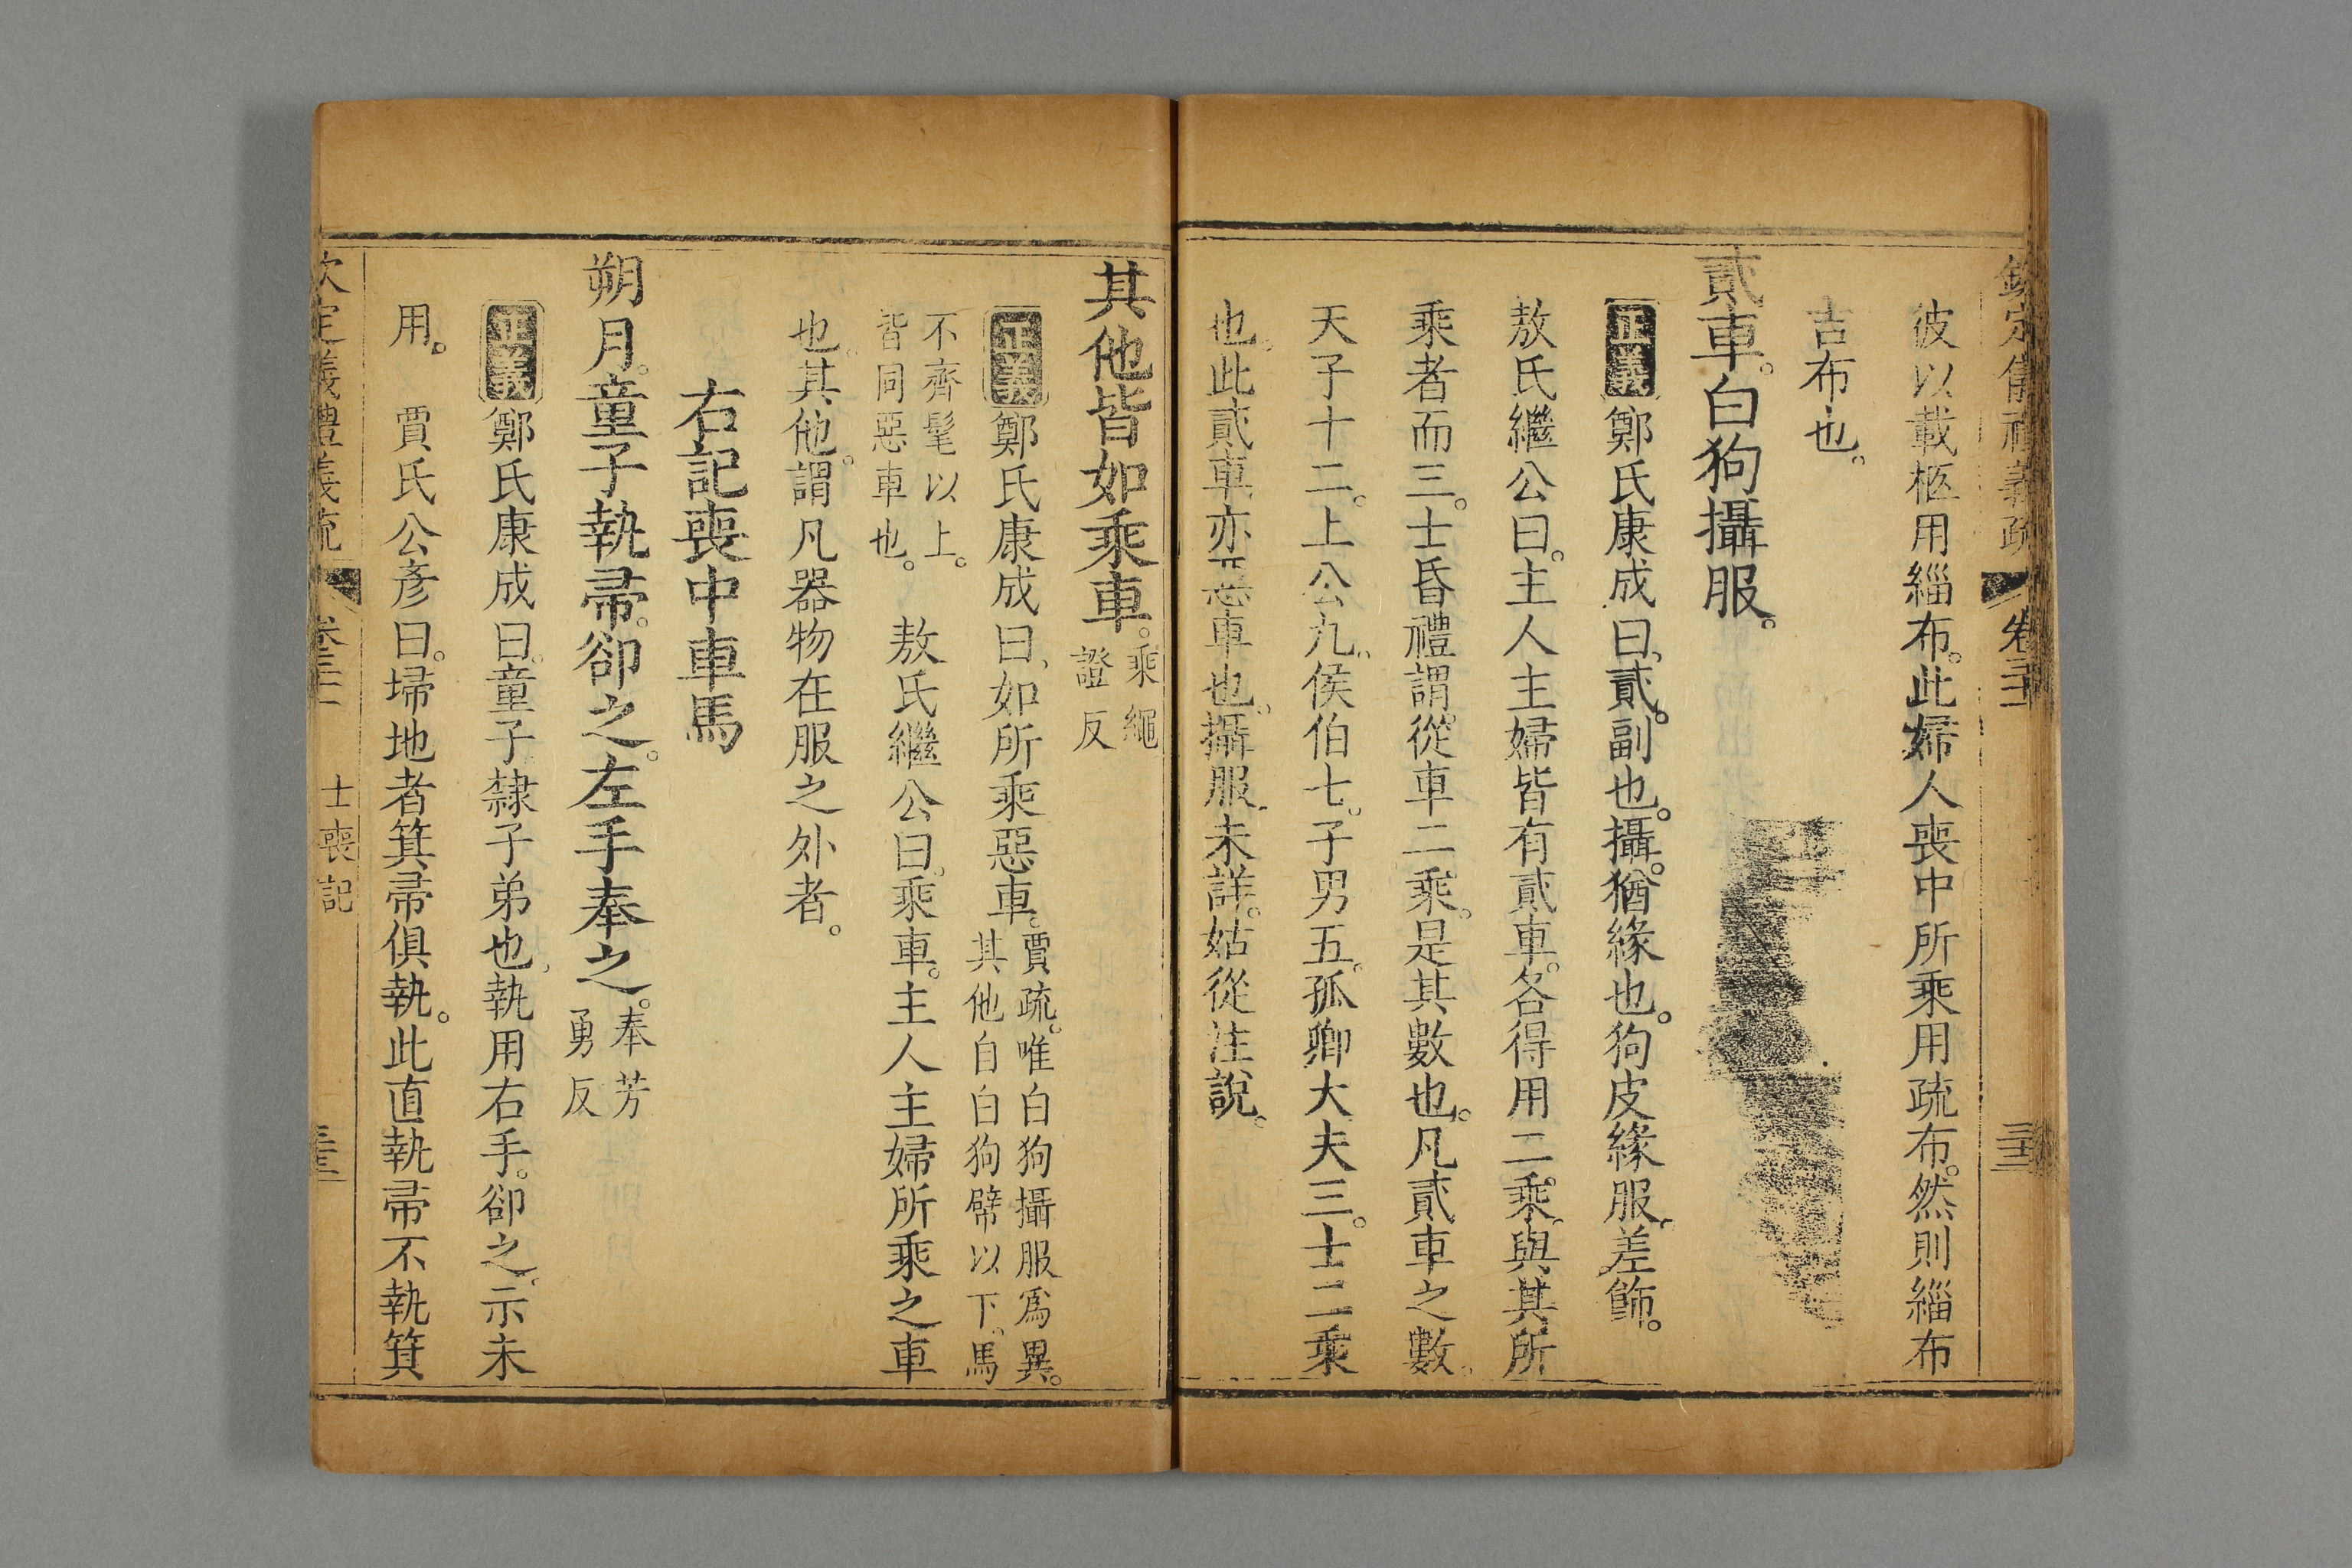 欽定儀禮義疏　卷三十二　三十三
彼以載柩用緇布。此婦人喪中所乘用疏布。然則緇布
吉布也。
貳車。白狗攝服。
正義鄭氏康成曰、貳。副也。攝。猶緣也。狗皮緣服。差飾。
敖氏繼公曰。主人主婦皆有貳車。各得用二乘。與其所
乘者而三。士昏禮謂。從車二乘。是其數也。凡貳車之數。
天子十二。上公九。侯伯七。子男五。孤卿大夫三。士二乘
也。此貳車亦惡車也。攝服。未詳。姑從注說。
其他皆如乘車。乘繩
證反
正義鄭氏康成曰、如所乘惡車。賈疏。唯白狗攝服爲異。
其他自白狗幦以下。馬
不齊髦以上。
皆同惡車也。敖氏繼公曰。乘車。主人主婦所乘之車
也。其他。謂凡器物在服之外者。
右記喪中車馬
朔月。童子執帚。卻之。左手奉之。奉芳
勇反
正義鄭氏康成曰。童子隸子弟也。執用右手。卻之。示未
用。賈氏公彥曰。埽地者箕帚俱執。此直執帚不執箕
欽定儀禮義疏　卷三十二　士喪記　三十三